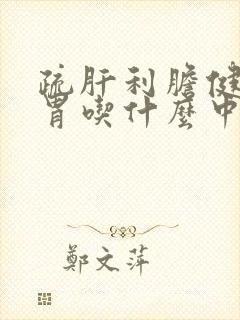 疏肝利膽健
胃喫什麼中
鄭文萍